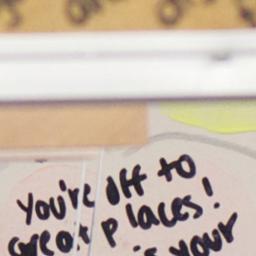 You're off to
great places!
is your